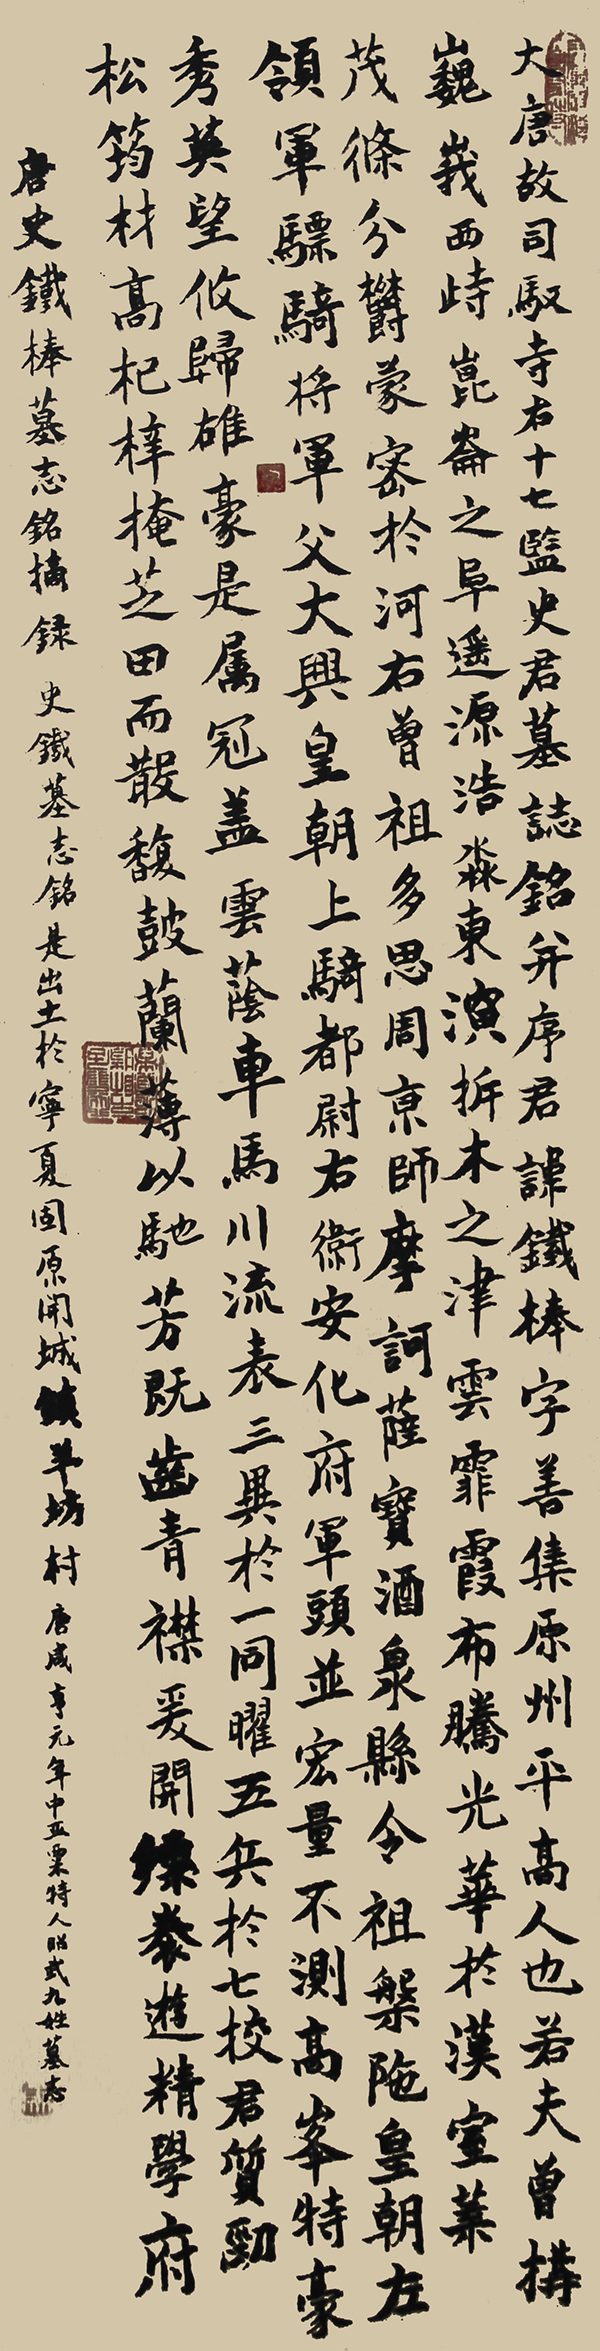 大唐故司馭寺右十七監史君墓誌銘并序君諱鐵棒字善集原州平高人也若夫曾構
巍峩西峙崑崙之阜遥源浩淼東演拆木之津雲霏霞布騰光華於漢室葉
茂條分欝蒙密於河右曾祖多思周京師摩訶薩寶酒泉縣令祖槃陁皇朝左
領軍驃騎将軍父大興皇朝上騎都尉右衛安化府軍頭並宏量不測高峯特豪
秀英望攸歸雄豪是属冠盖雲蔭車馬川流表三異於一同曜五兵於七校君質勁
松筠材高杞梓掩芝田而散馥皷蘭薄以馳芳既齒青襟爰開縹袠遊精學府
唐史鐵棒墓志銘摘録 史鐵墓志銘是出土於寧夏固原開城鎮羊坊村 唐咸亨元年中亚粟特人昭武九姓墓志